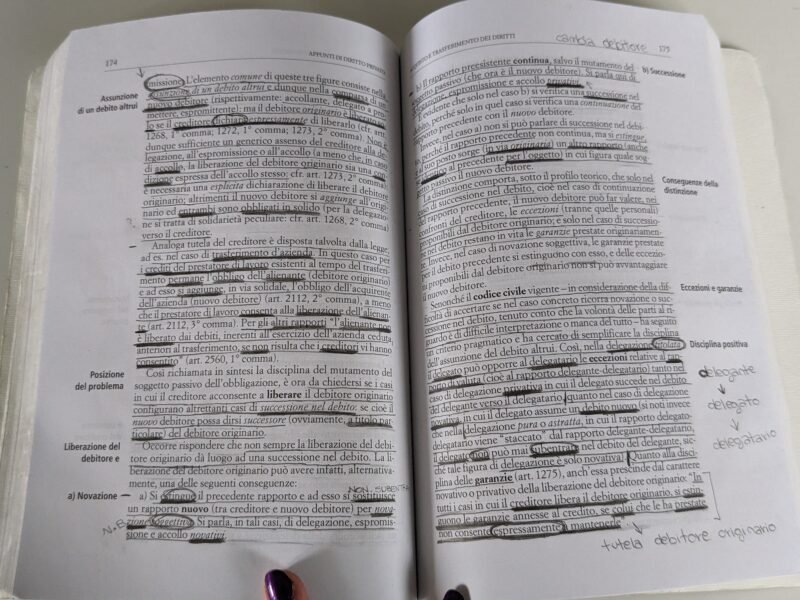 174
APPUNTI DI DIRITTO PRIVATO
Assunzione
di un debito altrui
missione. L'elemento comune di queste tre figure consiste nella
assunzione di un debito altrui e dunque nella comparsa di un
nuovo debitore (rispettivamente: accollante, delegato a pro-
mettere, espromittente): ma il debitore originario è liberato so-
lo se il creditore dichiara espressamente di liberarlo (cfr. art.
1268, 1° comma; 1272, 1° comma; 1273, 2° comma). Non è
dunque sufficiente un generico assenso del creditore alla de-
legazione, all'espromissione o all'accollo (a meno che, in caso
di accollo, la liberazione del debitore originario sia una con-
dizione espressa dell'accollo stesso: cfr. art. 1273, 2° comma):
è necessaria una esplicita dichiarazione di liberare il debitore
originario; altrimenti il nuovo debitore si aggiunge all'origi-
nario ed entrambi sono obbligati in solido (per la delegazio-
ne, si tratta di solidarietà peculiare: cfr. art. 1268, 2° comma)
verso il creditore.
Analoga tutela del creditore è disposta talvolta dalla legge,
ad es. nel caso di trasferimento d'azienda. In questo caso per
i crediti del prestatore di lavoro esistenti al tempo del trasferi-
mento permane l'obbligo dell'alienante (debitore originario)
e ad esso si aggiunge, in via solidale, l'obbligo dell'acquirente
dell'azienda (nuovo debitore) (art. 2112, 2° comma), a meno
che il prestatore di lavoro consenta alla liberazione dell'alienan-
te (art. 2112, 3° comma). Per gli altri rapporti "l'alienante non
è liberato dai debiti, inerenti all'esercizio dell'azienda ceduta
anteriori al trasferimento, se non risulta che i creditori vi hanno
consentito" (art. 2560, 1° comma).
Posizione
del problema
Così richiamata in sintesi la disciplina del mutamento del
soggetto passivo dell'obbligazione, è ora da chiedersi se i casi
in cui il creditore acconsente a liberare il debitore originario
configurano altrettanti casi di successione nel debito: se cioè il
nuovo debitore possa dirsi successore (ovviamente, a titolo par-
ticolare) del debitore originario.
Liberazione del
debitore e
Occorre rispondere che non sempre la liberazione del debi-
tore originario dà luogo ad una successione nel debito. La li-
berazione del debitore originario può avere infatti, alternativa-
mente, una delle seguenti conseguenze:
NON SUBENTRA
a) Novazione
a) Si estingue il precedente rapporto e ad esso si sostituisce
un rapporto nuovo (tra creditore e nuovo debitore) per nova-
N.B.
zione soggettiva. Si parla, in tali casi, di delegazione, espromis-
sione e accollo novativi.
E TRASFERIMENTO DEI DIRITTI
cambia debitore
175
b) Successione
b) Il rapporto preesistente continua, salvo il mutamento del
passivo (che ora è il nuovo debitore). Si parla qui di
delegazione, espromissione e accollo privativi.
È evidente che solo nel caso b) si verifica una successione nel
debito, perché solo in quel caso si verifica una continuazione del
debito precedente con il nuovo debitore.
Invece, nel caso a) non si può parlare di successione nel debi-
to, perché il rapporto precedente non continua, ma si estingue,
e al suo posto sorge (in via originaria) un altro rapporto (anche
al precedente per l'oggetto) in cui figura quale sog-
getto passivo il nuovo debitore.
Conseguenze della
distinzione
La distinzione comporta, sotto il profilo teorico, che solo nel
caso di successione nel debito, cioè nel caso di continuazione
del rapporto precedente, il nuovo debitore può far valere, nei
confronti del creditore, le eccezioni (tranne quelle personali)
disponibili dal debitore originario; e solo nel caso di successio-
ne nel debito restano in vita le garanzie prestate originariamen-
te. Invece, nel caso di novazione soggettiva, le garanzie prestate
per il debito precedente si estinguono con esso, e delle eccezio-
ni proponibili dal debitore originario non si può avvantaggiare
il nuovo debitore.
Eccezioni e garanzie
Senonché il codice civile vigente – in considerazione della dif-
ficoltà di accertare se nel caso concreto ricorra novazione o suc-
cessione nel debito, tenuto conto che la volontà delle parti al ri-
guardo è di difficile interpretazione o manca del tutto – ha seguito
un criterio pragmatico e ha cercato di semplificare la disciplina
Disciplina positiva
dell'assunzione del debito altrui. Così, nella delegazione titolata
il delegato può opporre al delegatario le eccezioni relative al rap-
porto di valuta (cioè al rapporto delegante-delegatario) tanto nel
caso di delegazione privativa in cui il delegato succede nel debito
del delegante verso il delegatario, quanto nel caso di delegazione
in cui il delegato assume un debito nuovo (si noti invece
che nella delegazione pura o astratta, in cui il rapporto delegato-
delegatario viene "staccato" dal rapporto delegante-delegatario,
il delegato non può mai subentrare nel debito del delegante, sic-
ché tale figura di delegazione è solo novativa). Quanto alla disci-
plina delle garanzie (art. 1275), anch'essa prescinde dal carattere
novativo o privativo della liberazione del debitore originario: "In
tutti i casi in cui il creditore libera il debitore originario, si estin-
guono le garanzie annesse al credito, se colui che le ha prestate
non consente espressamente a mantenerle"
delegante
delegato
delegatario
tutela debitore originario